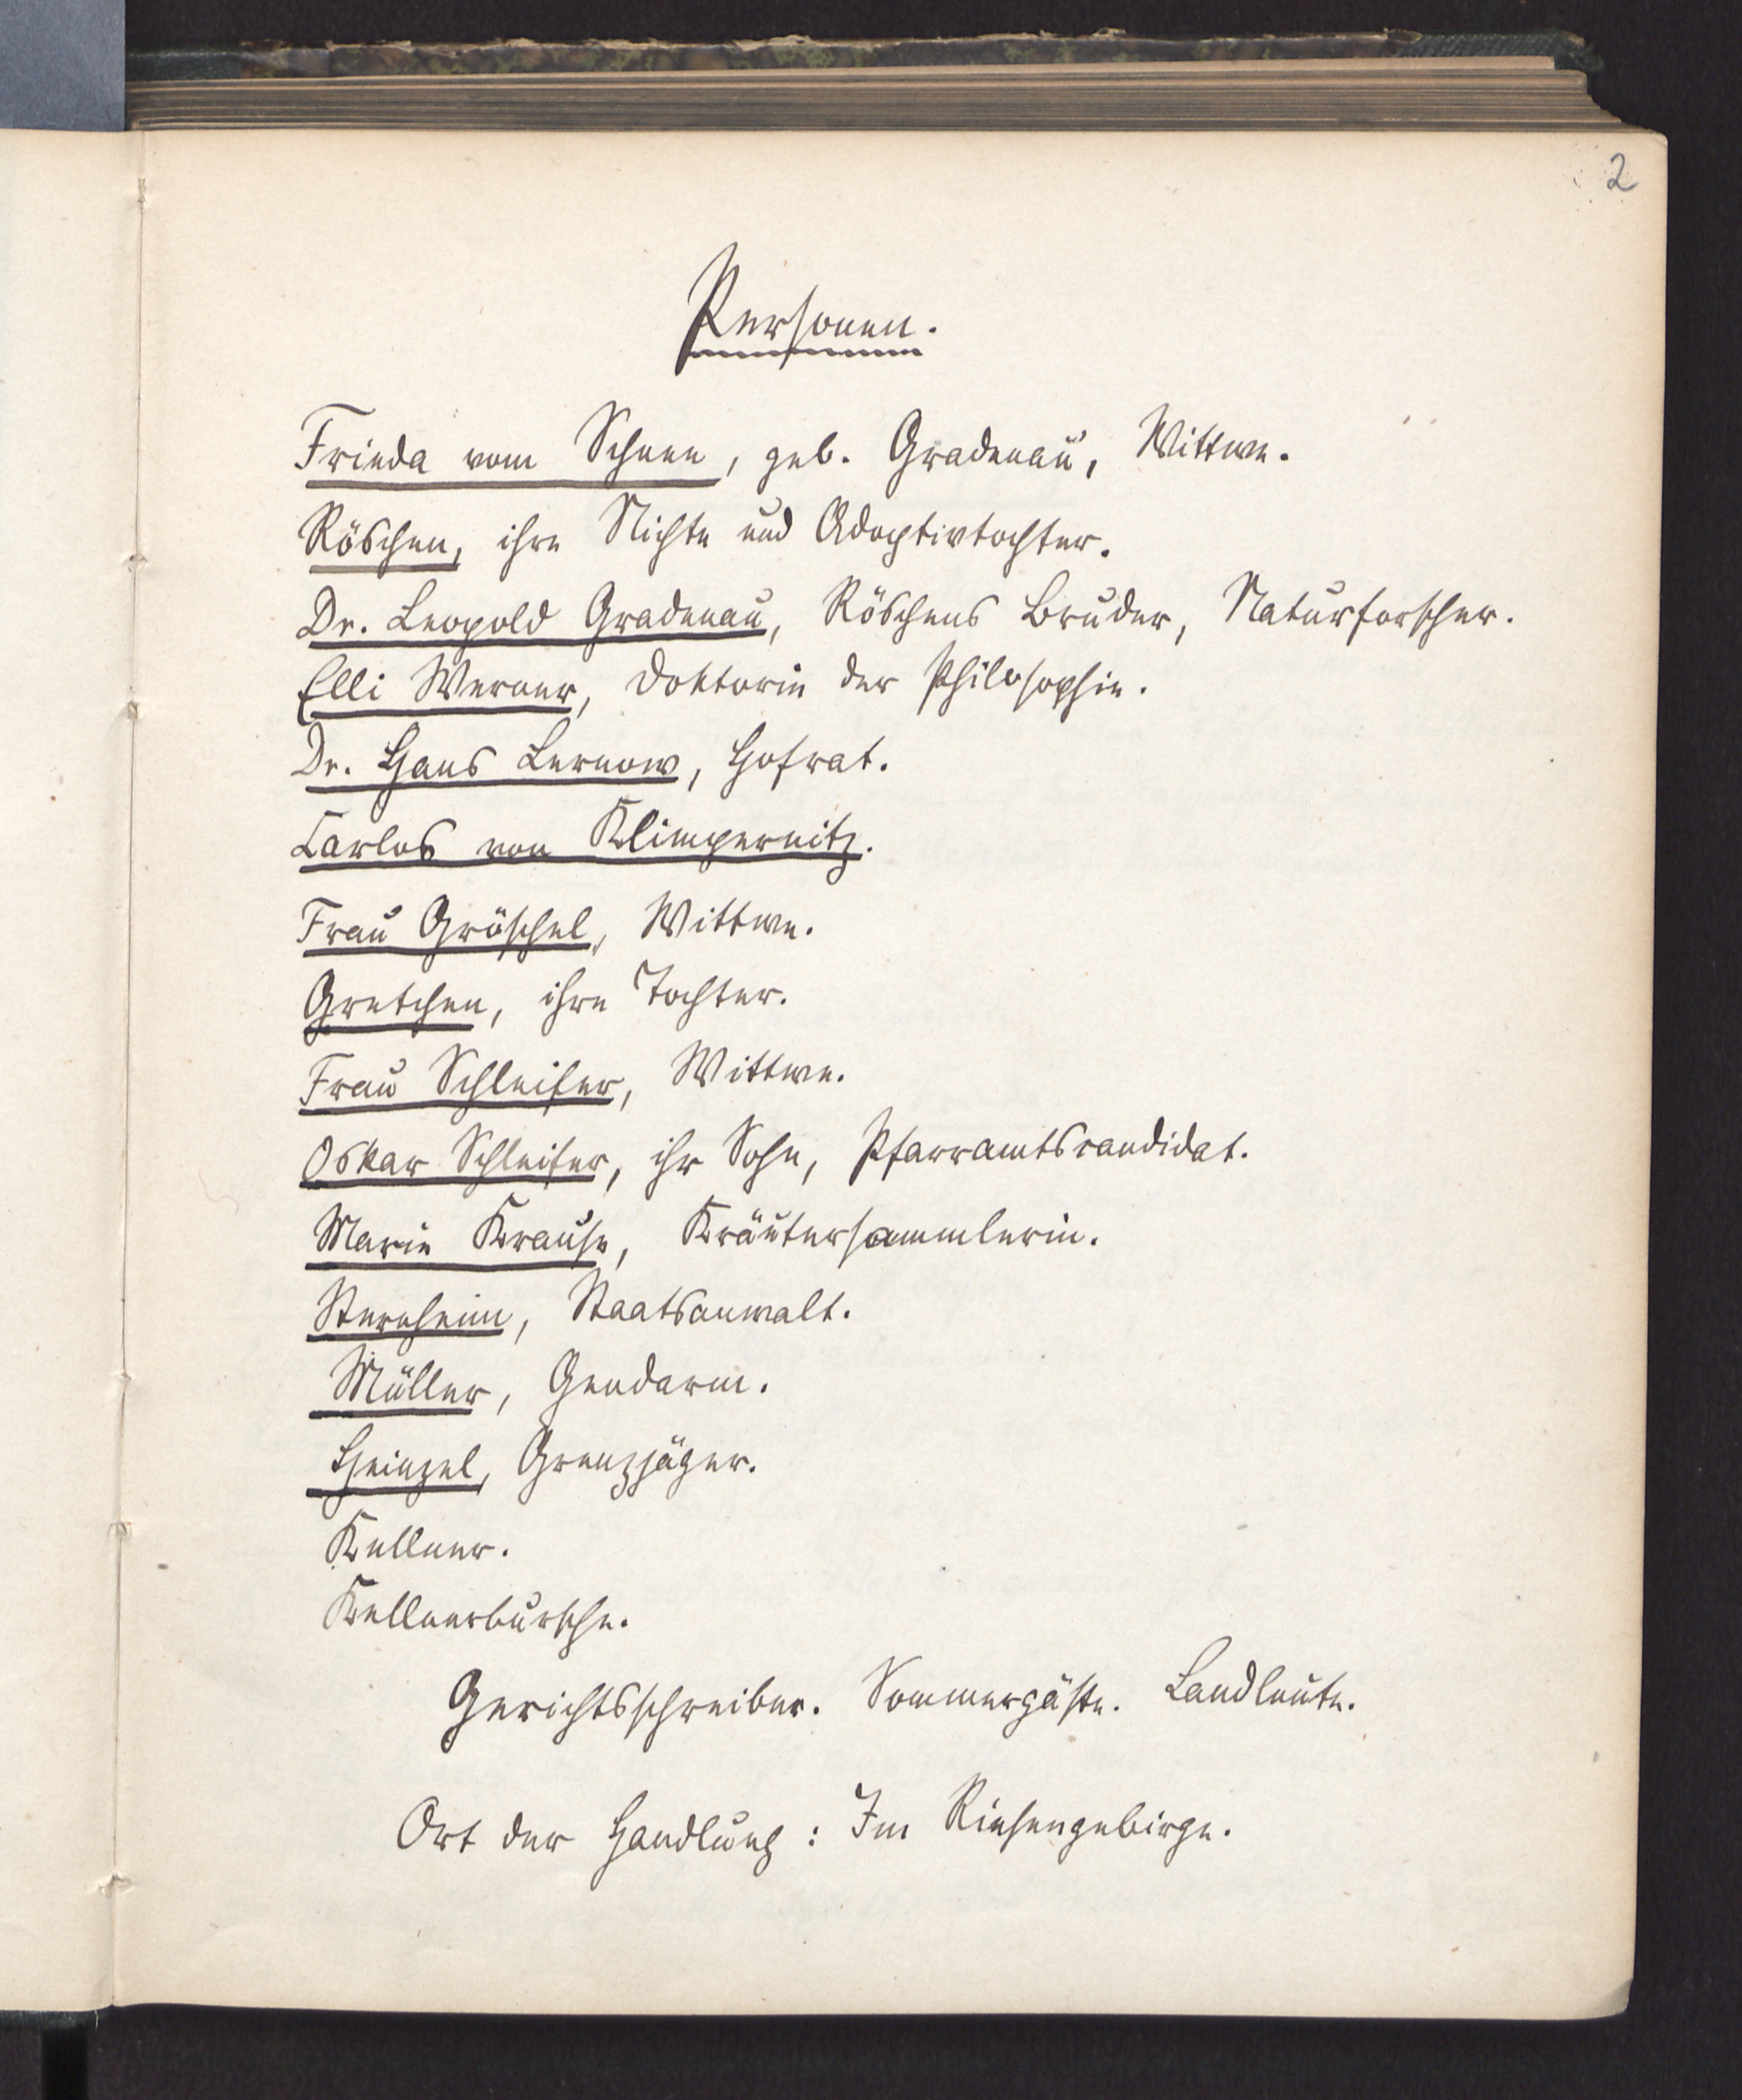 2
Personen.
Frieda vom Schnee, geb. Gradenau, Wittwe.
Röschen, ihre Nichte und Adoptivtochter.
Dr. Leopold Gradenau, Röschens Bruder, Naturforscher.
Elli Werner, Doktorin der Philosophie.
Dr. Hans Lernow, Hofrat.
Carlos von Klimpernitz.
Frau Gröschel, Wittwe.
Gretchen, ihre Tochter.
Frau Schleifer, Wittwe.
Oskar Schleifer, ihr Sohn, Pfarramtscandidat.
Marie Krause, Kräutersammlerin.
Sternheim, Staatsanwalt.
Müller, Gendarm.
Heinzel, Grenzjäger.
Kellner.
Kellnerbursche.
Gerichtsschreiber. Sommergäste. Landleute.
Ort der Handlung: Im Riesengebirge.